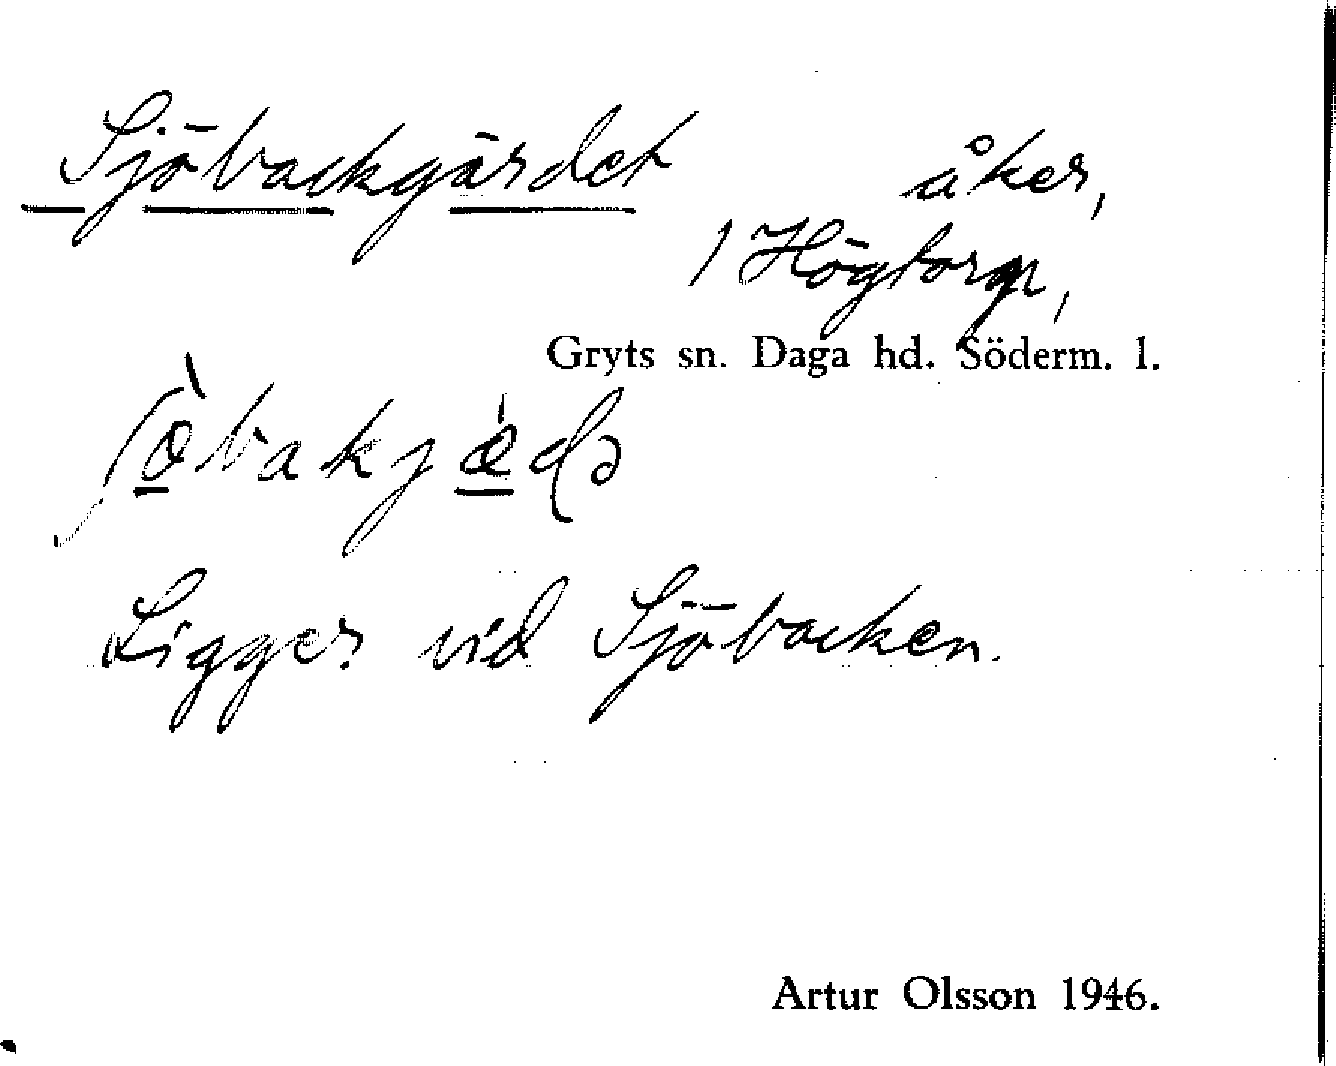 Sjöbackgärdet åker,
1 Högtorp,
Gryts sn. Daga hd. Söderm. l.
Ligger vid Sjöbacken.
Artur Olsson 1946.